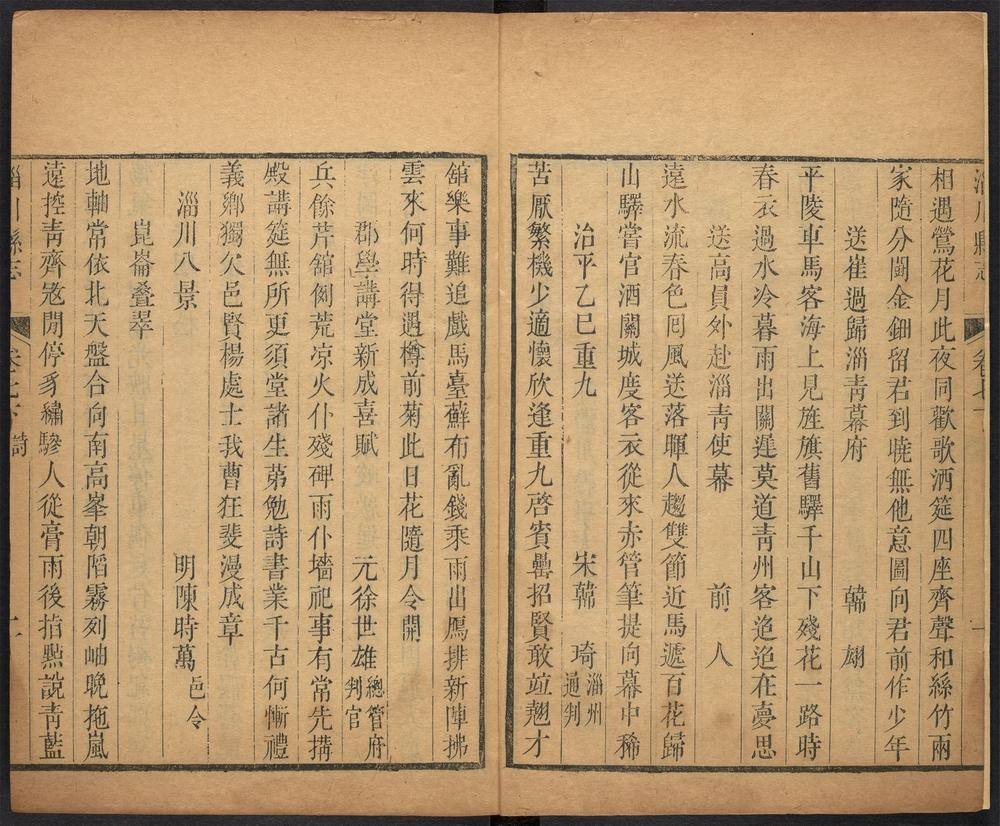 淄川縣志
卷七下
一
相遇鶯花月此夜同歡歌酒筵四座齊聲和絲竹兩
家隨分鬭金鈿留君到曉無他意圖向君前作少年
送崔過歸淄青幕府　韓翃
平陵車馬客海上見旌旗舊驛千山下殘花一路時
春衣過水冷暮雨出關遲莫道青州客迢迢在夢思
送高員外赴淄青使幕　前人
遠水流春色囘風送落暉人趨雙節近馬遞百花歸
山驛嘗官酒關城度客衣從來赤管筆提向幕中稀
治平乙巳重九　宋韓琦淄州通判
苦厭繁機少適懷欣逢重九啓賓罍招賢敢竝翹才
舘樂事難追戲馬臺蘚布亂錢乘雨出鴈排新陣拂
雲來何時得遇樽前菊此日花隨月令開
郡學講堂新成喜賦　元徐世雄總管府判官
兵餘芹舘匊荒凉火仆殘碑雨仆墻祀事有常先搆
殿講筵無所更須堂諸生苐勉詩書業千古何慚禮
義鄉獨欠邑賢楊處士我曹狂斐漫成章
淄川八景　明陳時萬邑令
崑崙叠翠
地軸常依北天盤合向南高峯朝䧟霧列岫晚拖嵐
遠控青齊逈閒停豸繡驂人從膏雨後指點說青藍
淄川縣志
卷七下　詩
二